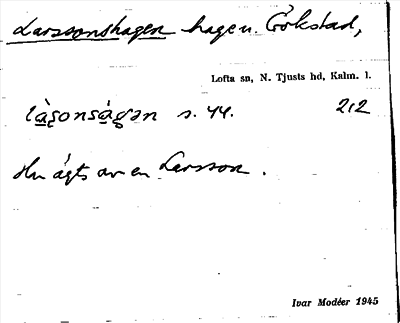 Larssonshagen hagen. Gökstad,
Lofta sn, N. Tjusts hd, Kalm. l.
là̱şonsá̱gən s. 44. 212
Har ägts av en Larsson.
Ivar Modéer 1945